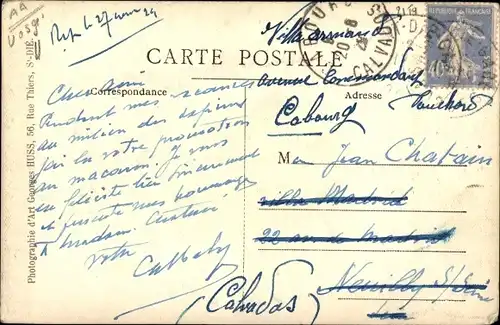 AA
Vosges
Rep. le 27
Villa Armand
CALVADOS
REPUBLIQUE FRANCAISE
CARTE POSTALE
Avenue Commandant
Correspondance
Adresse
Touchard
Cabourg
Cher Ami
Pendant mes vacances
au milieu des sapins
j'ai lu votre promotion
au maçonn. je vous
en félicite bien sincèrement
et présente mes hommages
à Madame.
votre
M Jean Chatain
villa Madrid
22 rue de Madrid
Neuilly s/Seine
(Calvados)
Photographie d'Art Georges HUSS, 56, Rue Thiers, St-DIÉ.